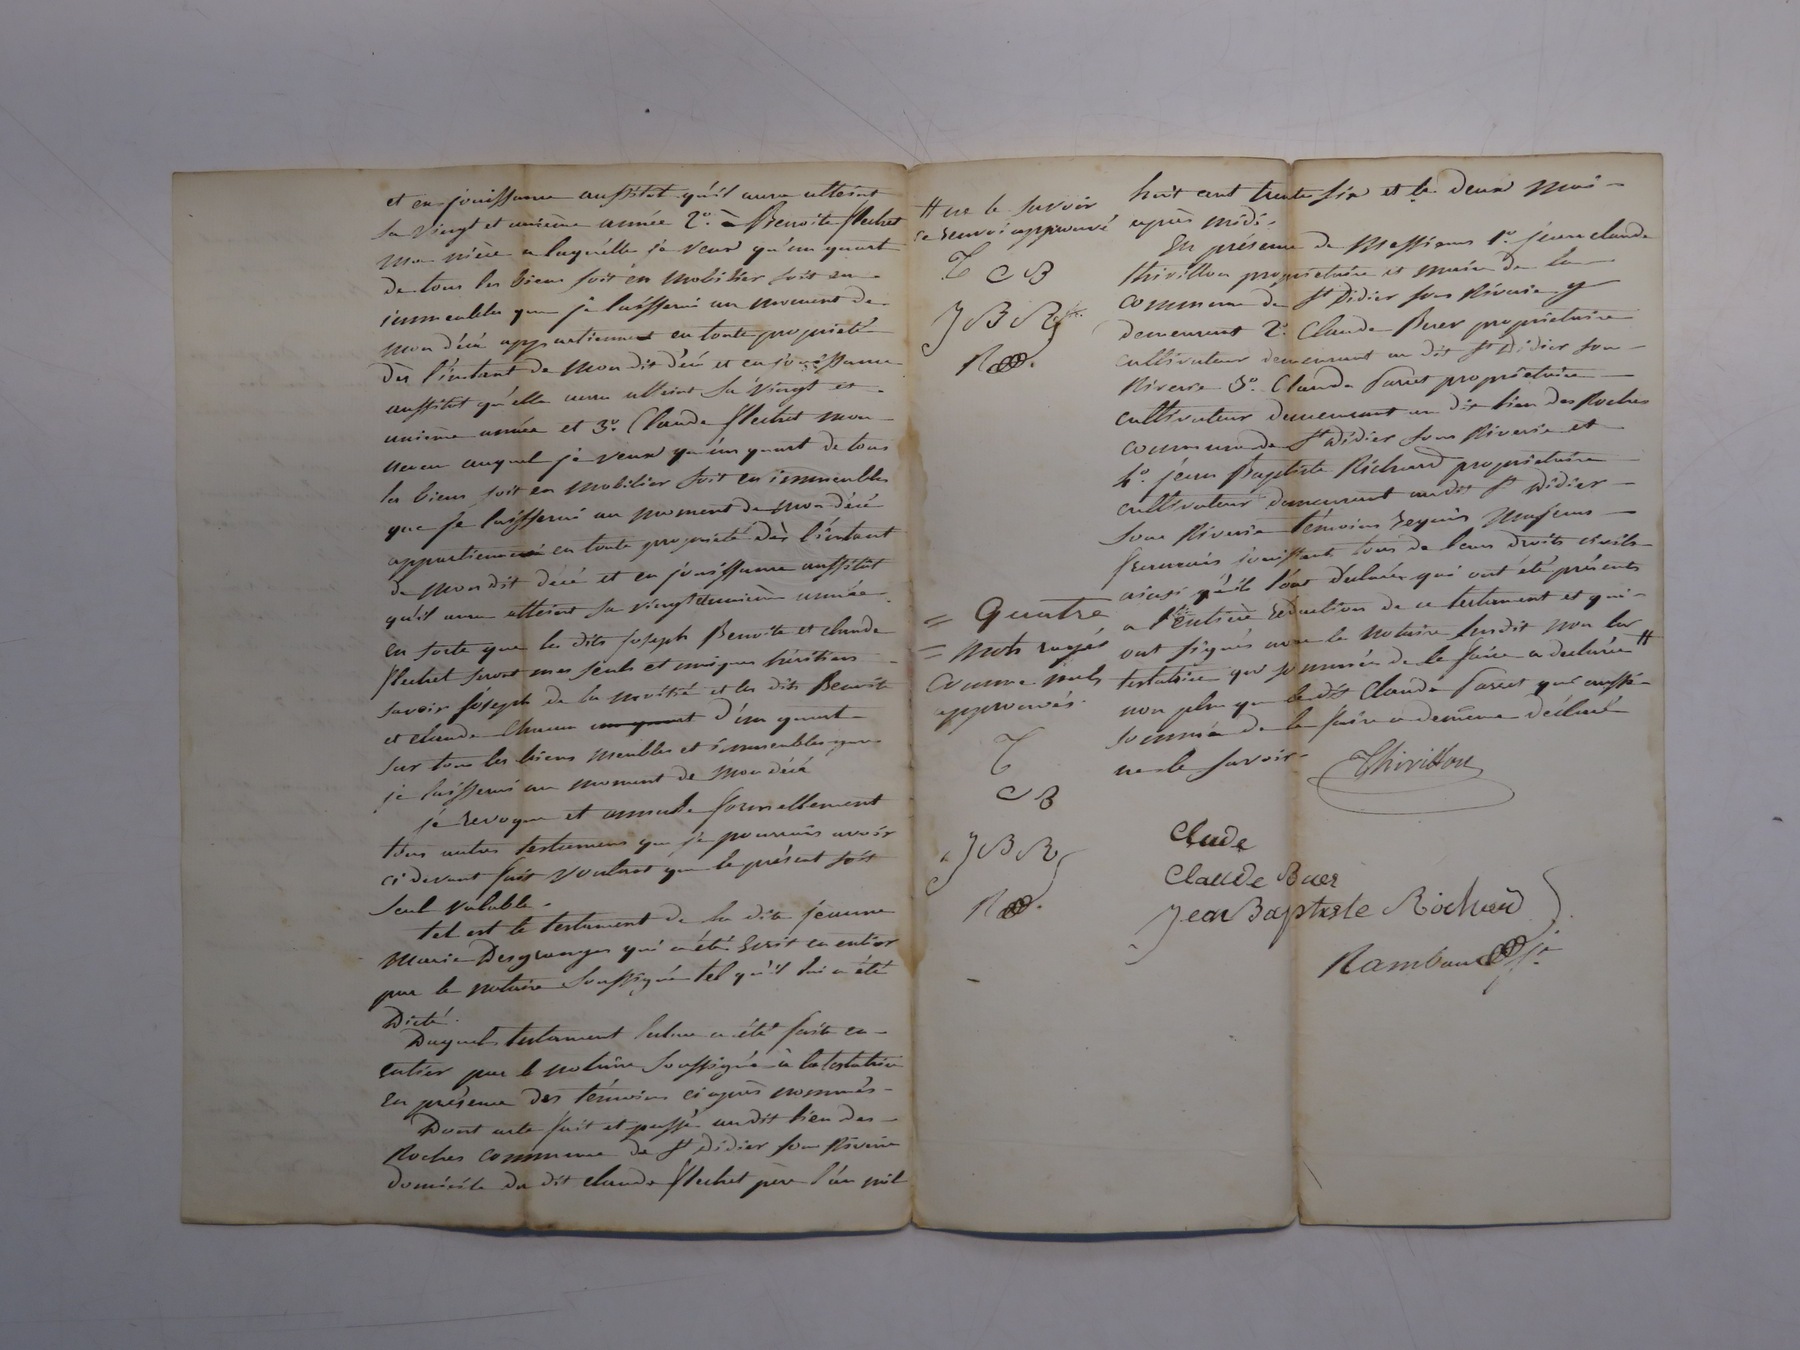 et en jouissance aussitôt qu'il aura atteint
sa vingt et unième année 2.° à Benoite flechet
ma nièce a laquelle je veux qu'un quart
de tous les biens soit en mobilier soit en
immeubles que je laisserai au moment de
mon décé appartiennent en toute propriété
dès l'instant de mon dit décé et en jouissance
aussitôt qu'elle aura atteint sa vingt et
unième année et 3.° Claude flechet mon
neveu auquel je veux qu'un quart de tous
les biens soit en mobilier soit en immeubles
que je laisserai au moment de mon décé
appartienne en toute propriété dès l'instant
de mon dit décé et en jouissance aussitôt
qu'il aura atteint sa vingt unième année
en sorte que les dits joseph Benoite et claude
flechet seront mes seuls et uniques héritiers
savoir joseph de la moitié et les dits Benoite
et claude chacun un quart d'un quart
sur tous les biens meubles et immeubles que
je laisserai au moment de mon décé
je revoque et annule formellement
tous autres testamens que je pourrais avoir
ci devant fait voulant que le présent soit
seul valable.
tel est le testament de la dite jeanne
marie Desgranges qui a été écrit en entier
par le notaire soussigné tel qu'il lui a été
Dicté.
Duquel testament lecture a été faite en
entier par le notaire soussigné à la testatrice
en présence des témoins ci après nommés
Dont acte fait et passé au dit lieu des
Roches commune de St Didier sous Riverie
domicile du dit claude flechet père l'an mil
# ne le savoir
ce renvoi approuvé
T C B
J B R
R
= Quatre
= mots rayés
comme nuls
approuvés.
T
C B
J B R
R
huit cent trente six et le deux mai
après midi.
En présence de Messieurs 1.° jean claude
thivillon propriétaire et maire de la
commune de St Didier sous Riverie y
demeurant 2.° Claude Buer propriétaire
cultivateur demeurant au dit St Didier sous
Riverie 3.° Claude Parret propriétaire
cultivateur demeurant au dit lieu des Roches
commune de St Didier sous Riverie et
4.° jean Baptiste Richard propriétaire
cultivateur demeurant au dit St Didier
sous Riverie témoins requis majeurs
français jouissant tous de leurs droits civils
ainsi qu'ils l'ont déclaré qui ont été présents
a l'entière rédaction de ce testament et qui
ont signés avec le notaire susdit non la
testatrice qui sommée de le faire a déclaré #
non plus que le dit Claude Parret qui aussi
sommé de le faire a de même déclaré
ne le savoir.
Thivillon
Claude
Claude Buer
Jean Baptiste Richard